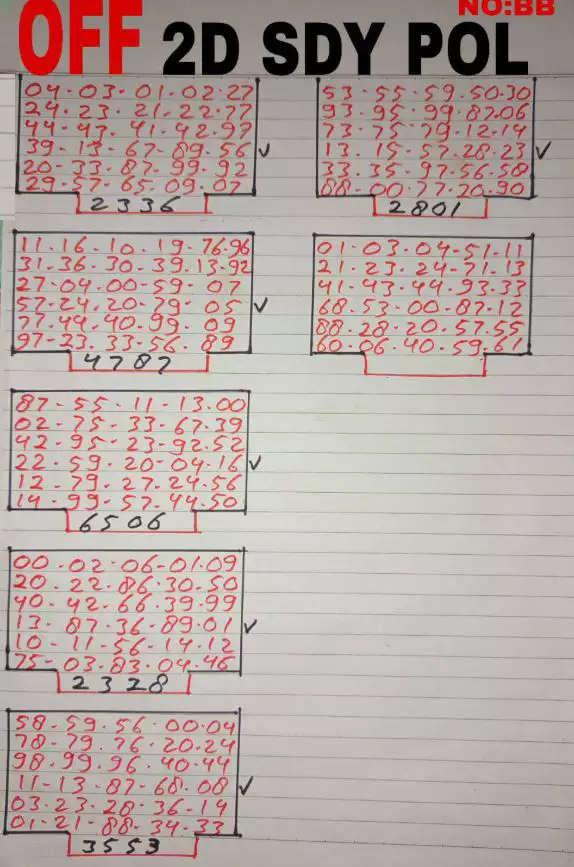 NO:BB
OFF 2D SDY POL
04-03-01-02-27
24-23-21-22-77
44-43-41-42-97
39-13-67-89-56
20-33-87-99-92
29-57-65-09-07
2336
11.16.10.19-76-96
31.36-30-39.13-92
27-04-00-59-07
57-24.20-79-05
77.44.40-99.09
97-23.33-56.89
4787
87-55-11-13.00
02-75-33-67.39
42-95-23-92.52
22.59.20-04.16
12.79.27-24-56
14-99-57.44.50
6506
00-02-06-01.09
20-22.86.30.50
40-42-66.39.99
13.87.36-89.01
10-11-56-14.12
75-03.83.04.46
2328
58-59.56.00.04
78-79.76.20.24
98.99.96.40.44
11-13-87-68.08
03.23-28.36-14
01-21-88.34.33
3553
53-55-59.50.30
93.95.99.87.06
73.75.79.12-14
13.15-57.28.23
33.35.97.56.58
88-00.77.20.90
2801
01-03.04-51-11
21.23.24-71.13
41-43.44.93.33
68.53.00.87.12
88.28.20.57.55
60.06.40.59.61